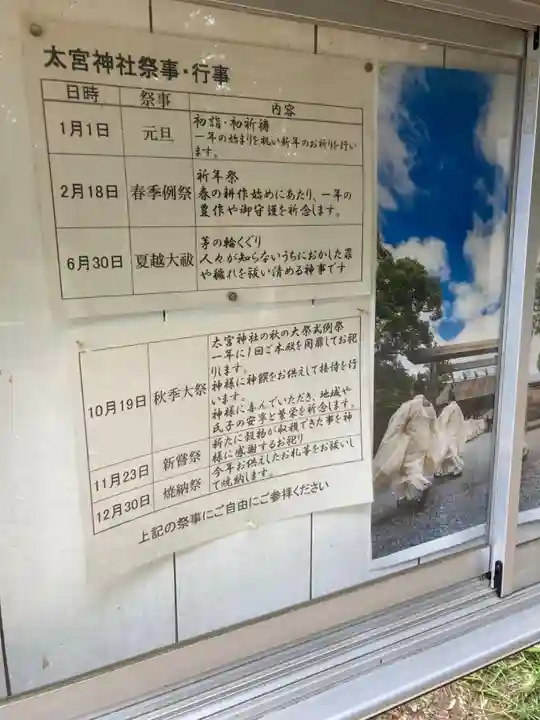 太宮神社祭事・行事
日時 祭事 内容
1月1日 元旦 初詣・初祈祷
一年の始まりを祝い新年のお祈りを行います。
2月18日 春季例祭 祈年祭
春の耕作始めにあたり、一年の
豊作や御守護を祈念します。
6月30日 夏越大祓 茅の輪くぐり
人々が知らないうちにおかした罪
や穢れを祓い清める神事です
10月19日 秋季大祭 太宮神社の秋の大祭式例祭
一年に1回ご本殿を開扉してお祀
りします。
神様に神饌をお供えして接待を行
います。
神様に喜んでいただき、地域や
氏子の安寧と繁栄を祈念します。
11月23日 新嘗祭 新たに穀物が収穫できた事を神
様に感謝するお祀り
12月30日 焼納祭 今年お供えしたお札等をお祓いし
て焼納します。
上記の祭事にご自由にご参拝ください